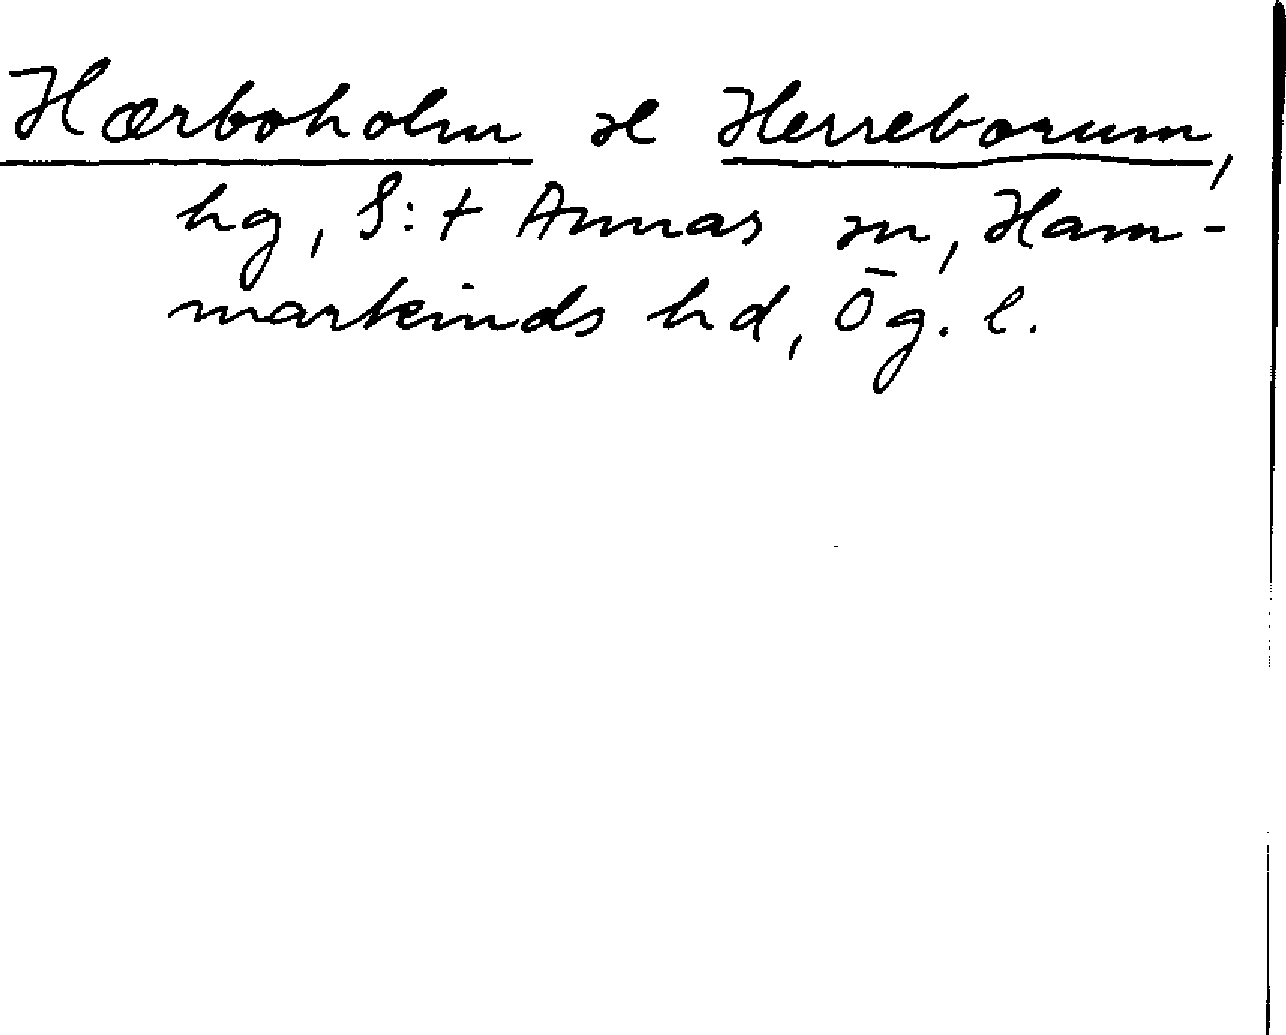 Hærboholm se Herreborum,
hg, S:t Annas sn, Ham-
markinds hd, Ög. l.